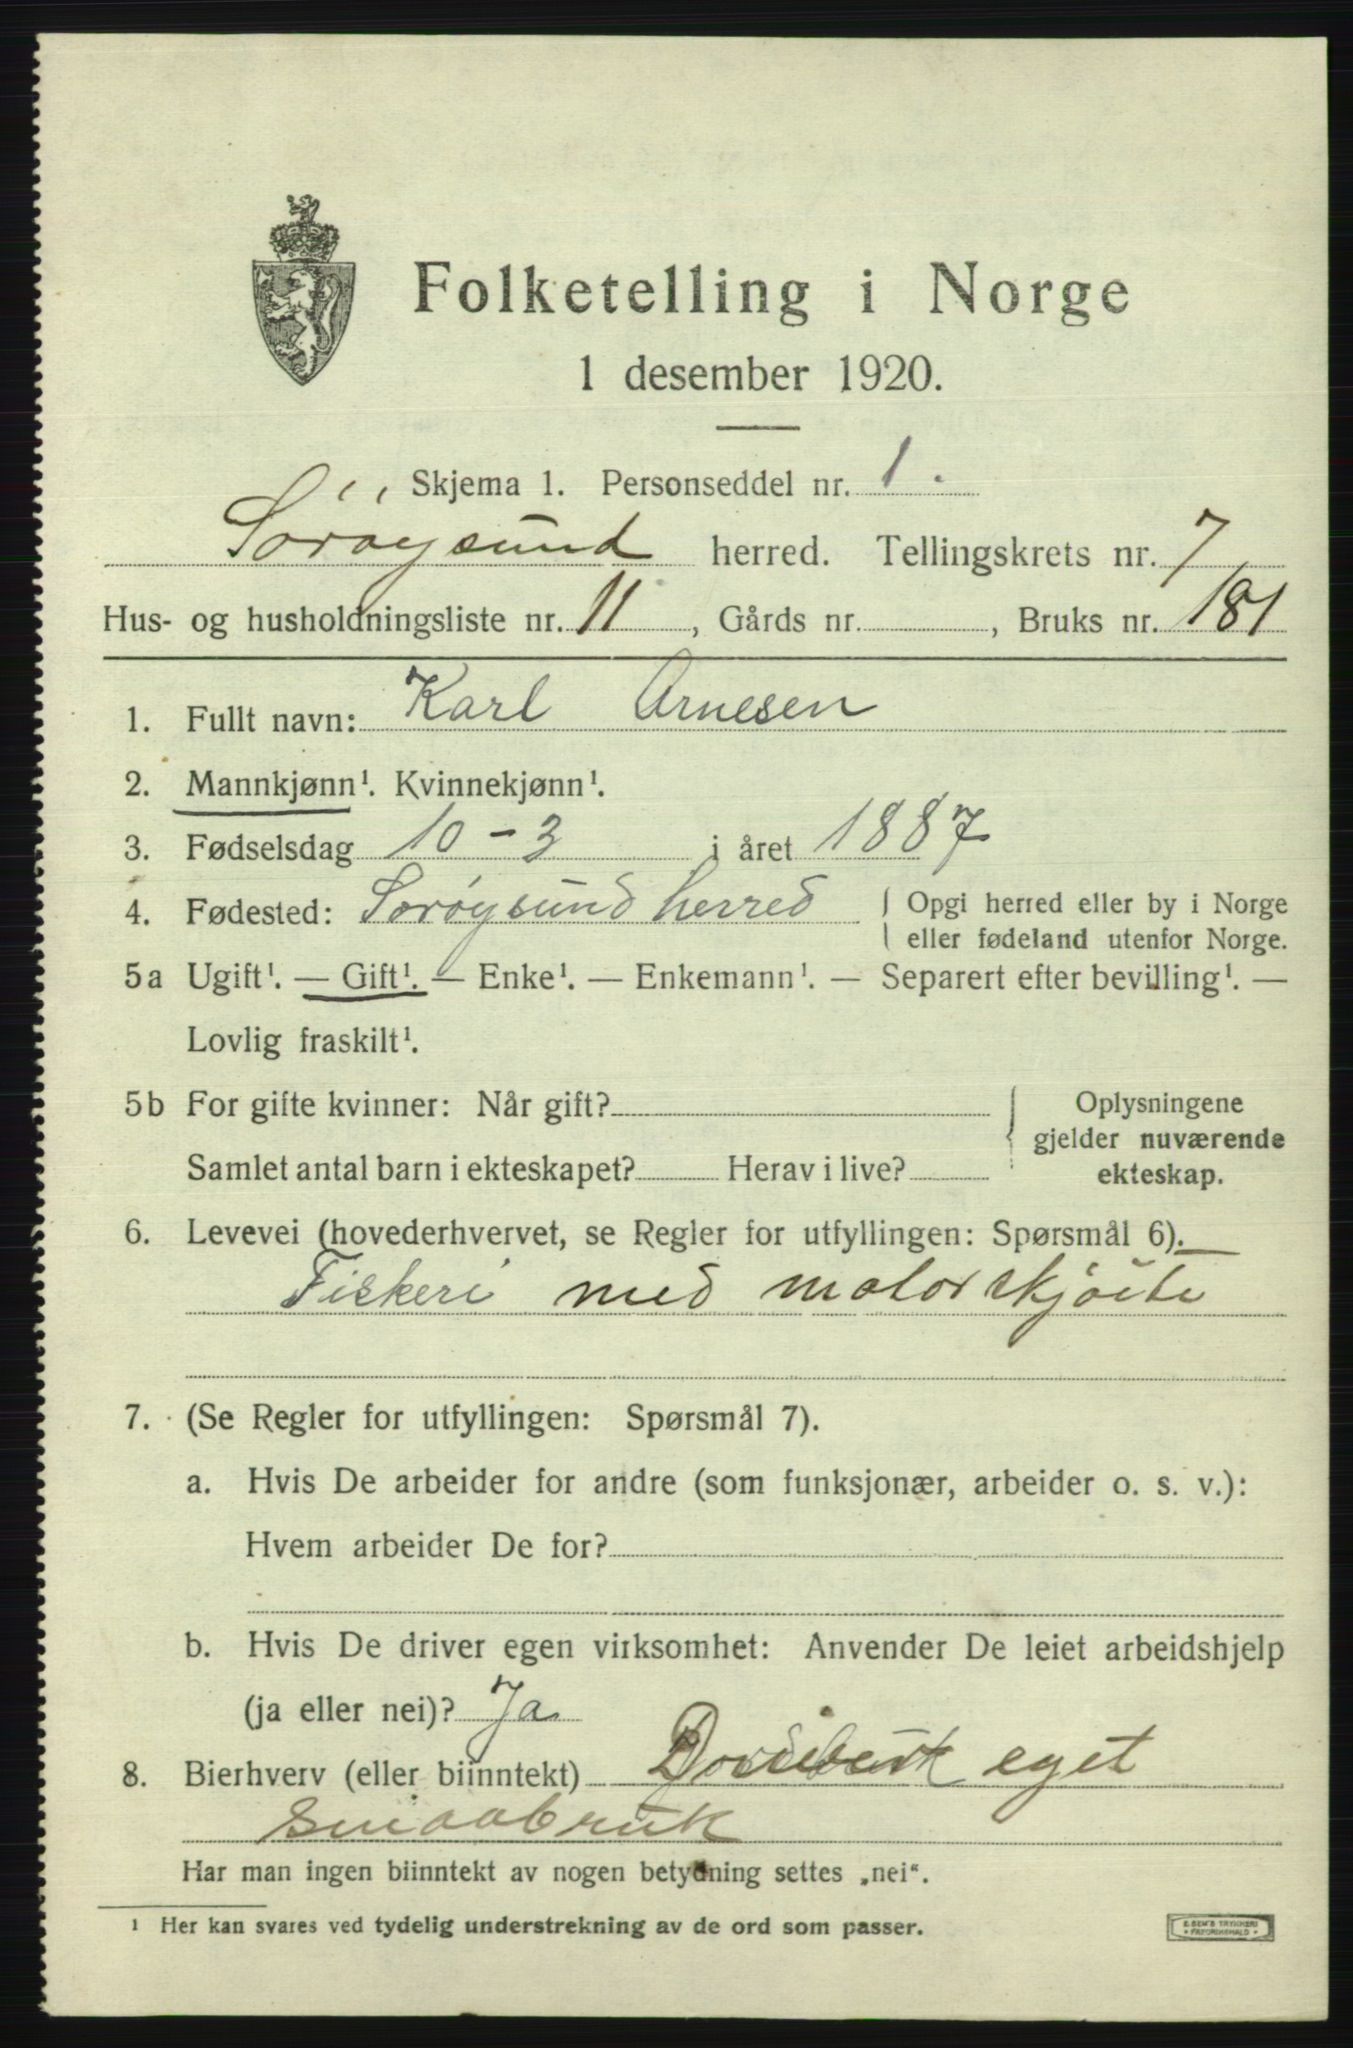 Folketelling i Norge
1 desember 1920.
Skjema 1. Personseddel nr. 1.
Sørøysund herred. Tellingskrets nr. 7
Hus- og husholdningsliste nr. 11, Gårds nr. , Bruks nr. 181
1. Fullt navn: Karl Arnesen
2. Mannkjønn¹. Kvinnekjønn¹.
3. Fødselsdag 10-3 i året 1887
4. Fødested: Sørøysund herred { Opgi herred eller by i Norge
{ eller fødeland utenfor Norge.
5a Ugift¹. — Gift¹. — Enke¹. — Enkemann¹. — Separert efter bevilling¹. —
Lovlig fraskilt¹.
5b For gifte kvinner: Når gift? { Oplysningene
gjelder nuværende
Samlet antal barn i ekteskapet? Herav i live? ekteskap.
6. Levevei (hovederhvervet, se Regler for utfyllingen: Spørsmål 6).
Fiskeri med motorskjöite
7. (Se Regler for utfyllingen: Spørsmål 7).
a. Hvis De arbeider for andre (som funksjonær, arbeider o. s. v.):
Hvem arbeider De for?
b. Hvis De driver egen virksomhet: Anvender De leiet arbeidshjelp
(ja eller nei)? Ja
8. Bierhverv (eller biinntekt) eget
smaabruk
Har man ingen biinntekt av nogen betydning settes „nei“.
¹ Her kan svares ved tydelig understrekning av de ord som passer.